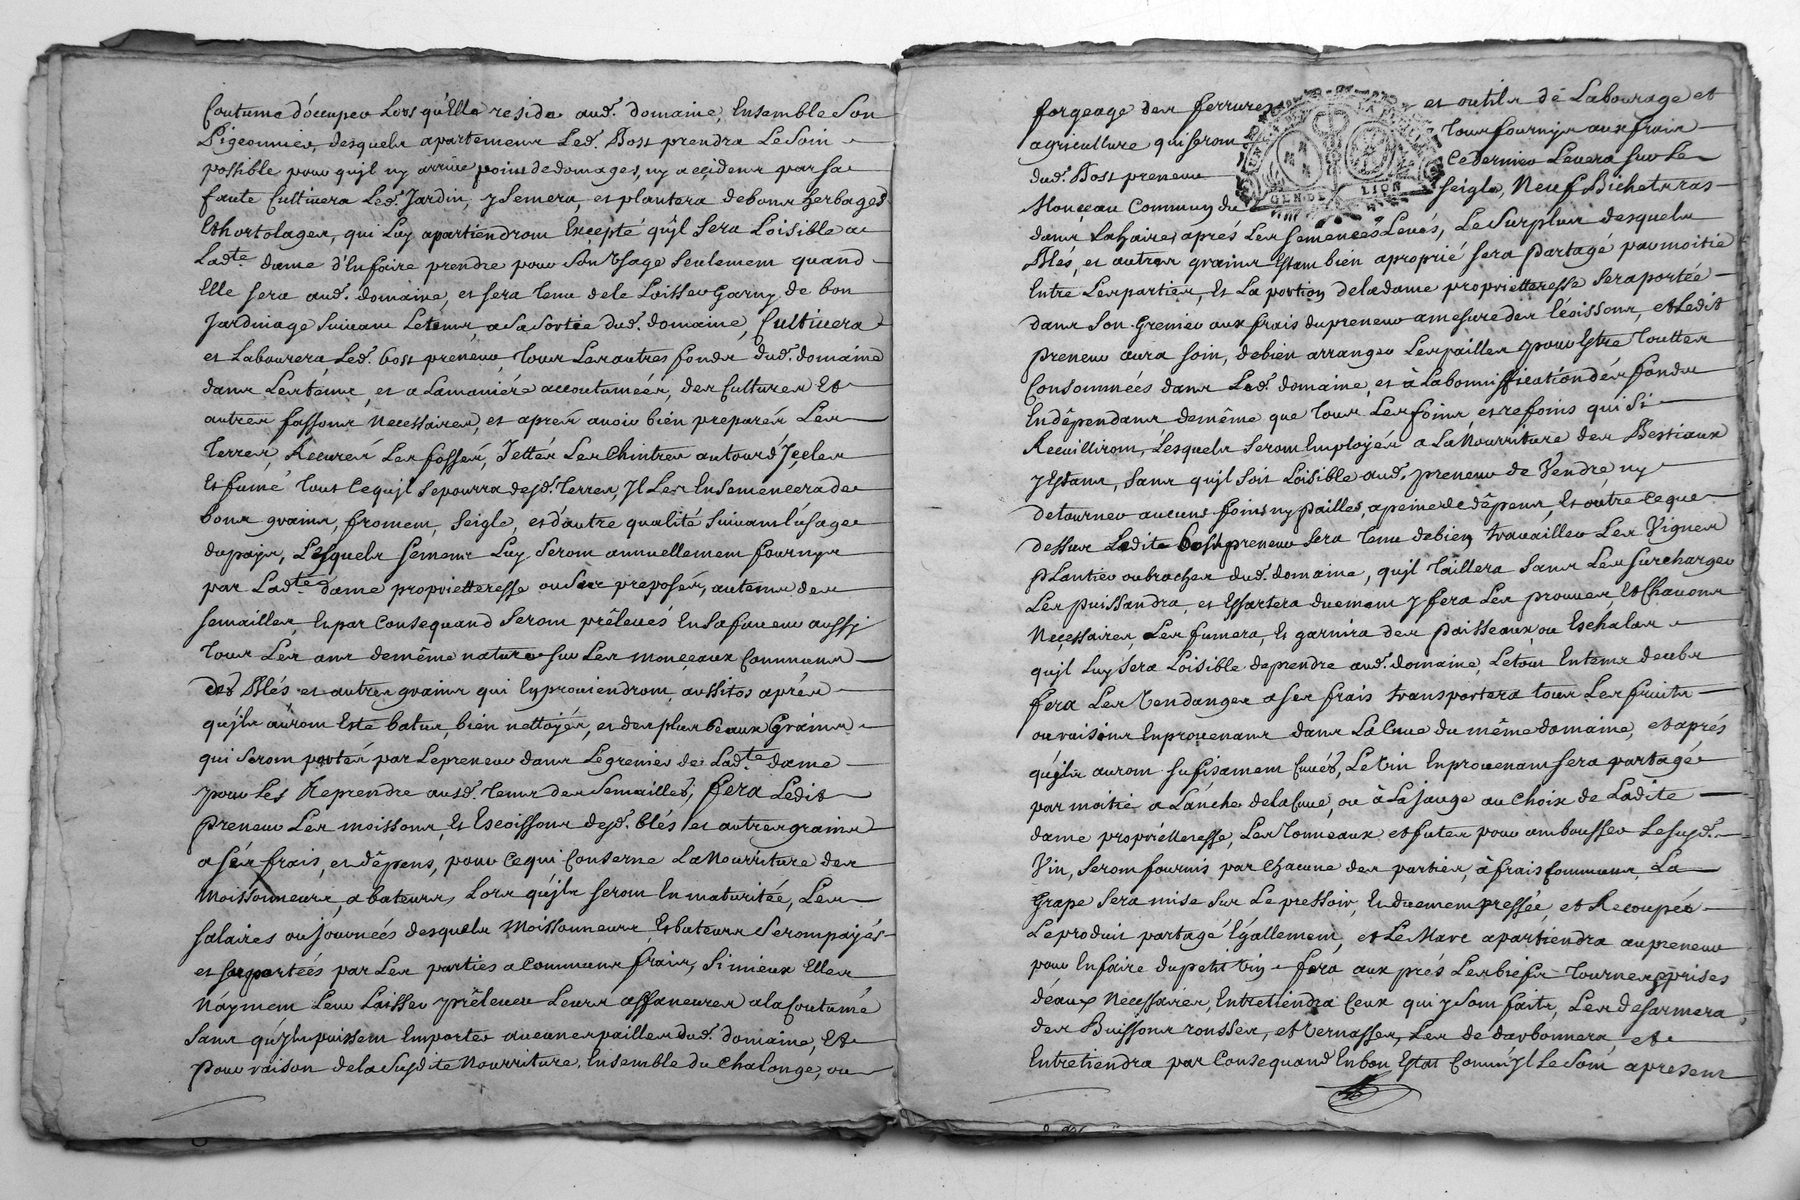 Coutume d'occuper Lors qu'Elle reside aud. domaine, Ensemble Son
Pigeonnier, desquels apartemens Led. Bost prendra Le Soin
possible pour qujl ny arrive point de domages, ny accident par sa
faute Cultivera Led. Jardin, y Semera et plantera de bons herbages
Et hortolages, qui Luy apartiendront Excepté qujl Sera Loisible a
Ladte dame d'En faire prendre pour Son Vsage Seulement quand
Elle sera aud. domaine, et sera tenu de le Laisser Garny de bon
Jardinage Suivant Letems, a Sa Sortie dud. domaine, Cultivera
et Labourera Led. bost preneur, tous Les autres fonds dud. domaine
dans Les tems, et a La maniére accoutumées, des Cultures Et
autres fassons Necessaires, et aprés avoir bien preparés Les
Terres, Recurés Les fossés, Jettés Les Chintres autour d'Jcelles
Et fumé tout Ce qujl Se pourra desd. Terres, Jl Les Ensemencera de
bons grains, froment, Seigle, et d'autre qualité Suivant l'usage
du païs, Lesquels Semens Luy Seront annuellement fournys
par Ladte dame proprietteresse ou Ses preposés, au tems des
semailles, Et par Consequand Seront prélevés En Sa faveur aussy
tous Les ans de même nature Sur Les monceaux Communs
des Blés et autres grains qui En proviendront, aussitos aprés
qujls auront Esté batus, bien nettoyés, et des plus beaux Grains
qui Seront portés par Le preneur dans Le grenier de Ladte dame
pour Les Reprendre ausd. tems des Semailles, fera Ledit
preneur Les moissons, Et Escoissons desd. blés et autres grains
a Ses frais, et dépens, pour Ce qui Conserne La Nourriture des
Moissonneurs, a bateurs, Lors qujls seront En maturitée, Les
salaires ou journées desquels Moissonneurs Et bateurs Seront payés
et suportées par Les parties a Communs frais, Si mieux Elles
N'ayment Leur Laisser prélever Leurs affaneures a la Coutume
Sans qujls puissent Emporter aucunes pailles dud. domaine, Et
pour raison de la Susdite Nourriture, Ensemble du Chalonge, ou
forgeage des ferrures et outils de Labourage et
agriculture qui seront tous fournys aux frais
dud. Bost preneur Ce dernier Levera Sur Le
Monceau Commun du seigle, Neuf Bichets ras
GEN DE LION
dans La haire, aprés Les Semences Levés, Le Surplus desquels
Blés, et autres grains Estant bien aproprié sera Partagé par moitié
Entre Les parties, Et La portion de la dame proprietteresse Sera portée
dans Son Grenier aux frais du preneur a mesure des Ecoissons, et Ledit
preneur aura soin, de bien arranger Les pailles pour Estre Touttes
Consommées dans Led. domaine, et à La bonniffication des fonds
En dépendans de même que tous Les foins et refoins qui Si
Recuilliront, Lesquels Seront Employés a La Nourriture des Bestiaux
y Estans, Sans qujl Soit Loisible aud. preneur de Vendre ny
detourner aucuns foins ny pailles, a peine de dépens, Et outre Ce que
dessus Ledite bost preneur Sera tenu de bien travailler Les Vignes
dud. domaine, qujl taillera Sans Les Surcharger
et Essartera duement y fera Les proues, Et Chavons
Necessaires, Les fumera, Et garnira des Paisseaux ou Eschalas
qujl Luy Sera Loisible de prendre aud. domaine, Le tout En tems deubs
fera Les Vendanges a Ses frais transportera tous Les fruits
ou raisins En provenans dans La Cuve du même domaine, et aprés
qujls auront Sufisament Cuvés, Le Vin En provenant Sera partagé
par moitié a L'anche de la Cuve, ou à La jauge au Choix de Ladite
dame proprietteresse, Les tonneaux et futes pour ambousser Le Susd.
Vin, Seront fournis par Chacune des parties, à frais Communs, La
Grape Sera mise Sur Le pressoir, Et duement pressée, et Recoupée
Le produit partagé Egallement, et Le Marc apartiendra au preneur
pour En faire du petit Vin fera aux prés Les biefs tournes, prises
d'eaux Necessaires, Entretiendra Ceux qui y Sont faits, Les desarmera
des Buissons ronsses, et Vernasses, Les de darbonnera, et
Entretiendra par Consequand En bon Estat Comm'jl Le Sont apresent